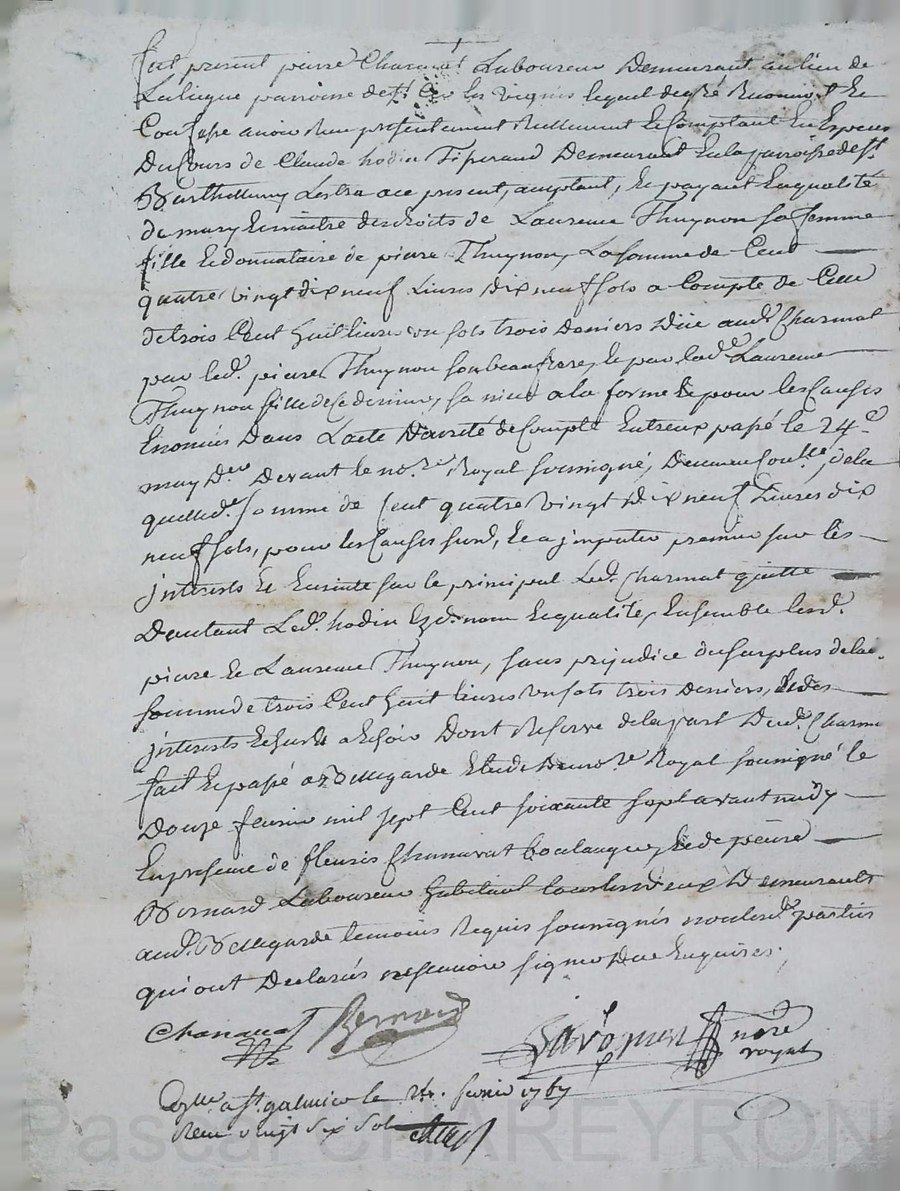 fut present pierre Charmat Laboureur Demeurant au lieu de
Laligue parroisse de st Cir les vignes lequel de gré Reconnoit Et
Confesse avoir Reu presentement Reellement Et Comptant En Especes
Du Cours de Claude hodin Tisserand Demeurant En la parroisse de st
Barthellemy Lestra ace present, acceptant, Et payant En qualité
de mary Et maitre des droits de Laurence Thuynon sa femme
fille Et donnataire de pierre Thuynon, La somme de Cent
quatre vingt dix neuf Livres dix neuf sols a Compte de Celle
de trois Cent huit livres un sols trois Deniers Düe aud. Charmat
par led. pierre Thuynon son beaufrere, Et par lade. Laurence
Thuynon fille de Ce dernier, sa niece a la forme Et pour les Causes
Enoncées Dans L'acte D'areté de Compte Entreux passé le 24e
may Der Devant le nore Royal soussigné, de la
quelle de. somme de Cent quatre vingt Dix neuf Livres dix
neuf sols, pour les Causes susd. Et a jmputer premier sur les
jnterests Et Ensuite sur le principal Led. Charmat quitte
Dautant Led. hodin Esd. nom Et qualité, Ensemble lesd.
pierre Et Laurence Thuynon, sans prejudice du surplus de la de.
somme de trois Cent huit livres un sols trois deniers, Et des
jnterests Echus a Echoir Dont Reserve de la part Dud. Charmat
fait Et passé a Bellegarde Etude Du nore Royal soussigné le
Douze fevrier mil sept Cent soixante sept avant midy
En presence de fleuris Chanavat boulanger, Et de pierre
Bernard Laboureur habitant tous les deux Demeurants
aud. Bellegarde temoins Requis soussignés non lesd. parties
qui ont Declarés ne scavoir signer De ce Enquises.
Chanavat Bernard nore
royal
Cgllé a st. galmier le 24. fevrier 1767
Reçu vingt six sols
Pascal CHAREYRON